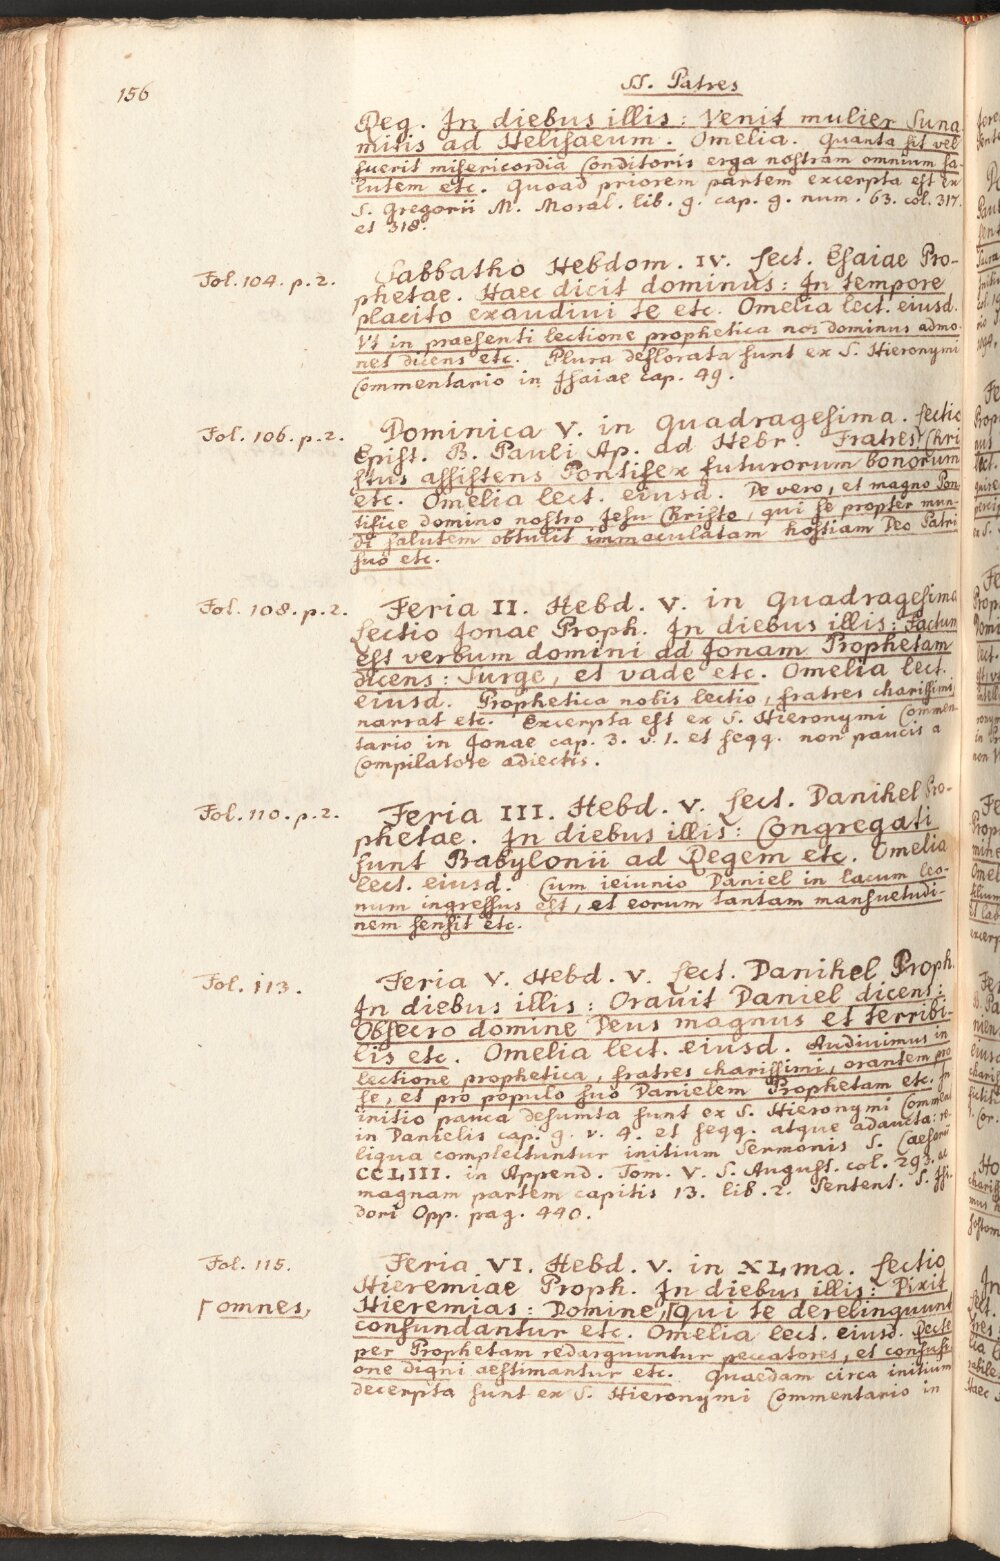 156
SS. Patres
Reg. In diebus illis: Venit mulier Suna-
mitis ad Helisaeum. Omelia. Quanta sit vel
fuerit misericordia Conditoris erga nostram omnium sa-
lutem etc. Quoad priorem partem excerpta est ex
S. Gregorii M. Moral. lib. 9. cap. 9. num. 63. col. 317.
et 318.
Fol. 104. p. 2.
Sabbatho Hebdom. IV. Lect. Esaiae Pro-
phetae. Haec dicit dominus: In tempore
placito exaudivi te etc. Omelia lect. eiusd.
Vt in praesenti lectione prophetica nos dominus admo-
net dicens etc. Plura deflorata sunt ex S. Hieronymi
Commentario in Isaiae cap. 49.
Fol. 106. p. 2.
Dominica V. in Quadragesima. Lectio
Epist. B. Pauli Ap. ad Hebr. Fratres Chri
stus assistens Pontifex futurorum bonorum
etc. Omelia lect. eiusd. De vero, et magno Pon
tifice domino nostro Jesu Christo, qui se propter mun-
di salutem obtulit immaculatam hostiam Deo Patri
suo etc.
Fol. 108. p. 2.
Feria II. Hebd. V. in Quadragesima
Lectio Jonae Proph. In diebus illis: Factum
est verbum domini ad Jonam Prophetam
dicens: Surge, et vade etc. Omelia lect.
eiusd. Prophetica nobis lectio, fratres charissimi,
narrat etc. Excerpta est ex S. Hieronymi Commen-
tario in Jonae cap. 3. v. 1. et seqq. non paucis a
Compilatore adiectis.
Fol. 110. p. 2.
Feria III. Hebd. V. Lect. Danihel Pro-
phetae. In diebus illis: Congregati
sunt Babylonii ad Regem etc. Omelia
lect. eiusd. Cum ieiunio Daniel in lacum leo-
num ingressus est, et eorum tantam mansuetudi-
nem sensit etc.
Fol. 113.
Feria V. Hebd. V. Lect. Danihel Proph.
In diebus illis: Orauit Daniel dicens:
Obsecro domine Deus magnus et terribi-
lis etc. Omelia lect. eiusd. Audiuimus in
lectione prophetica, fratres charissimi, orantem pro
se, et pro populo suo Danielem Prophetam etc. In
initio pauca desumta sunt ex S. Hieronymi Comment
in Danielis cap. 9. v. 4. et seqq. atque adaucta: re-
liqua complectuntur initium Sermonis S. Caesarii
CCLIII. in Append. Tom. V. S. August. col. 293. ac
magnam partem capitis 13. lib. 2. Sentent. S. Isi-
dori Opp. pag. 440.
Fol. 115.
Feria VI. Hebd. V. in XLma. Lectio
Hieremiae Proph. In diebus illis: Dixit
┌ omnes,
Hieremias: Domine,┌qui te derelinquunt
confundantur etc. Omelia lect. eiusd. Recte
per Prophetam redarguuntur peccatores, et confusi-
one digni aestimantur etc. Quaedam circa initium
decerpta sunt ex S. Hieronymi Commentario in